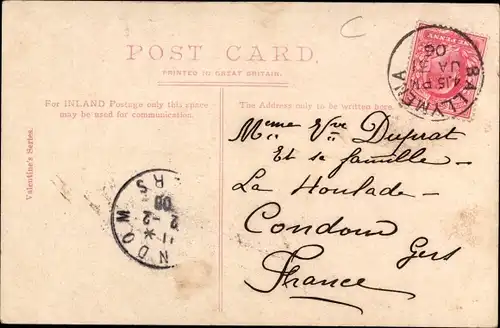 C
POST CARD.
PRINTED IN GREAT BRITAIN.
ONE PENNY
BALLYMENA
4.15 PM
JA
06
For INLAND Postage only this space
may be used for communication.
The Address only to be written here.
Valentine's Series.
Mme Vve Duprat
Et sa famille
La Houlade
Condom
Gers
France
NDOM
RS
11 *
2 -2
06